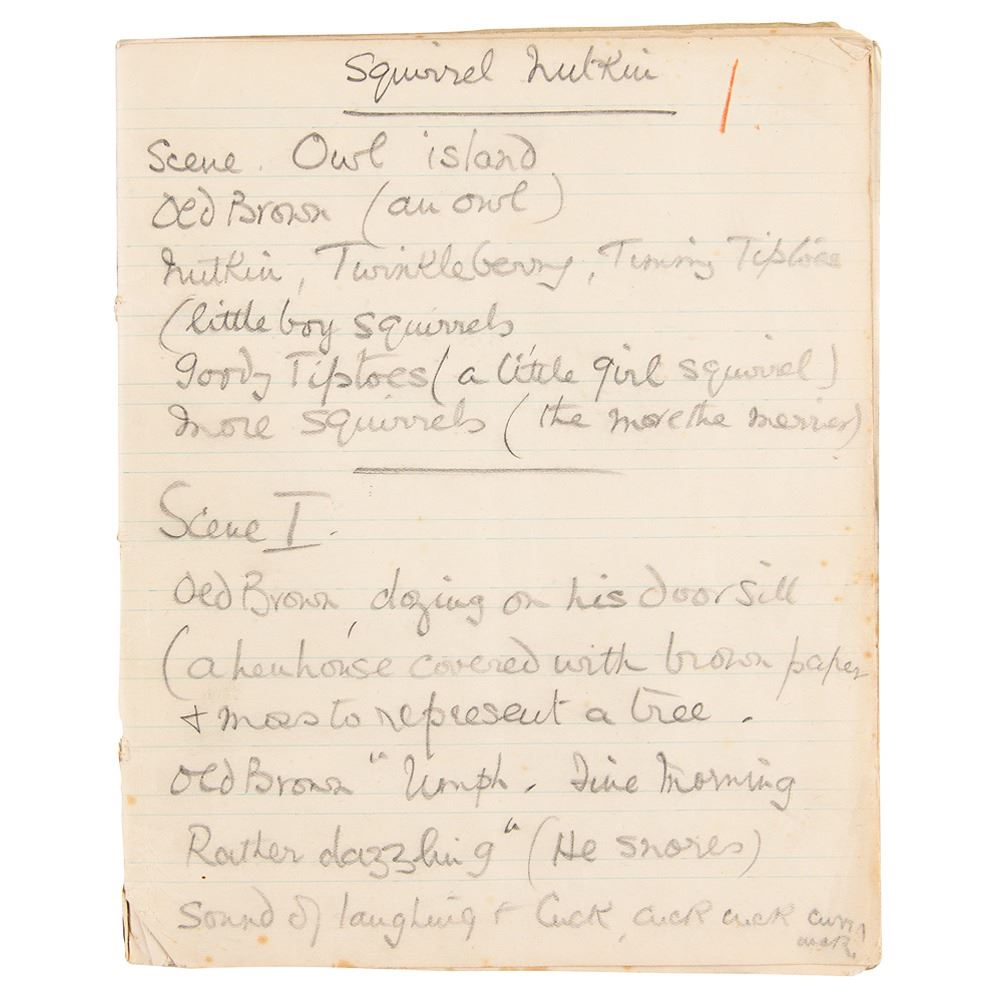 Squirrel Nutkin
1.
Scene. Owl island
Old Brown (an owl)
Nutkin, Twinkleberry, Timmy Tiptoes
(little boy squirrels
Goody Tiptoes (a little girl squirrel)
More squirrels (the more the merrier)
Scene I.
Old Brown, dozing on his door sill
(a henhouse covered with brown paper
+ moss to represent a tree.
Old Brown "Umph. Fine Morning
Rather dazzling" (He snores)
Sound of laughing + Cuck, cuck cuck
cuck